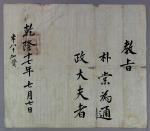 敎旨
朴 為通
政大夫者
乾隆十七年七月七日